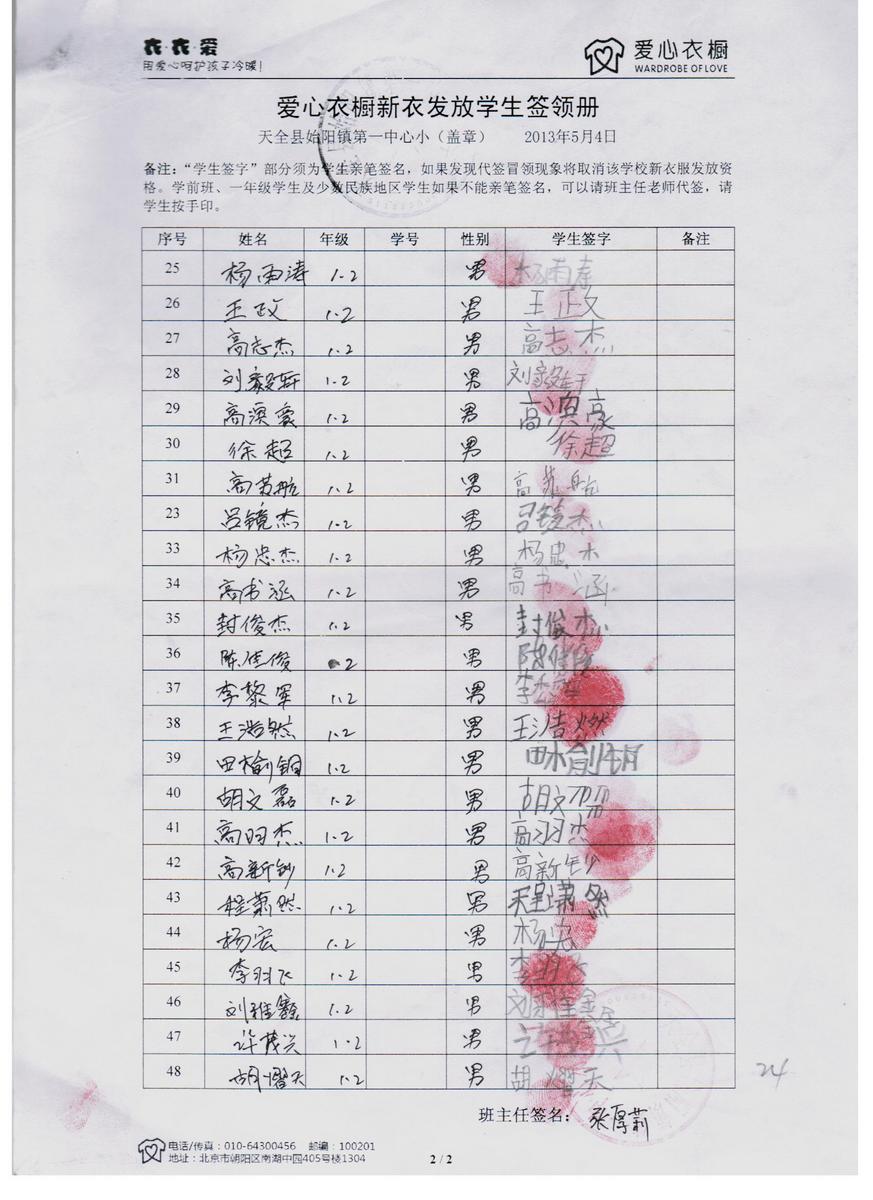 衣·衣·爱
用爱心呵护孩子冷暖！
爱心衣橱
WARDROBE OF LOVE
爱心衣橱新衣发放学生签领册
天全县始阳镇第一中心小（盖章） 2013年5月4日
备注：“学生签字”部分须为学生亲笔签名，如果发现代签冒领现象将取消该学校新衣服发放资
格。学前班、一年级学生及少数民族地区学生如果不能亲笔签名，可以请班主任老师代签，请
学生按手印。
序号 姓名 年级 学号 性别 学生签字 备注
25 杨雨涛 1.2 男 杨雨涛
26 王政 1.2 男 王政
27 高志杰 1.2 男 高志杰
28 刘毅轩 1.2 男 刘毅轩
29 高滨豪 1.2 男 高滨豪
30 徐超 1.2 男 徐超
31 高苏航 1.2 男 高苏航
23 吕镜杰 1.2 男 吕镜杰
33 杨忠杰 1.2 男 杨忠杰
34 高书涵 1.2 男 高书涵
35 封俊杰 1.2 男 封俊杰
36 陈佳俊 2 男 陈佳俊
37 李黎军 1.2 男 李
38 王浩然 1.2 男 王浩燃
39 田榆钢 1.2 男 田榆
40 胡文磊 1.2 男 胡文
41 高羽杰 1.2 男 高羽杰
42 高新钞 1.2 男 高新钞
43 程萧然 1.2 男 程潇然
44 杨宏 1.2 男 杨宏
45 李羽飞 1.2 男 李羽飞
46 刘雅鑫 1.2 男 刘雅鑫
47 许茂兴 1.2 男 兴
48 胡熠天 1.2 男 胡熠天
24
班主任签名： 张厚莉
电话/传真：010-64300456 邮编：100201
地址：北京市朝阳区南湖中园405号楼1304
2 / 2